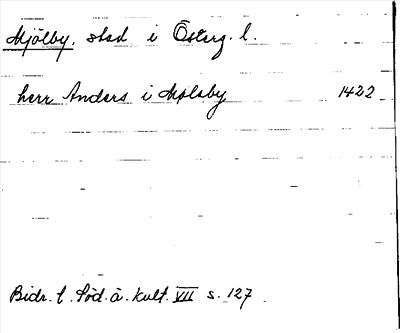 Mjölby, stad i Österg. l.
herr Anders i Mølaby 1422
Bidr. t. Söd. å. kult. VII s. 127.